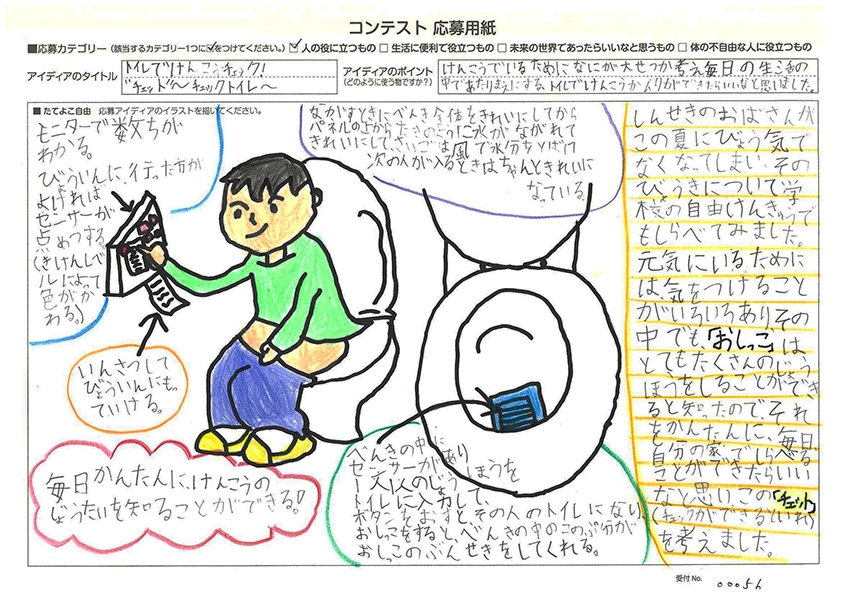 コンテスト 応募用紙
■応募カテゴリー（該当するカテゴリー1つに☑をつけてください。）☑人の役に立つもの □生活に便利で役立つもの □未来の世界であったらいいなと思うもの □体の不自由な人に役立つもの
アイディアのタイトル
トイレでけんこうチェック!
アイディアのポイント
(どのように使う物ですか?)
けんこうでいるためになにが大せつか考え毎日の生活の
中であたりまえにする、トイレでけんこうか
ができたらいいなと思いました。
■たてよこ自由 応募アイディアのイラストを描いてください。
モニターで数ちが
わかる。
びょういんに、行った方が
よければ
センサーが
点めつする。
(きけんレベ
ルによって
色がか
わる。)
ながすときにべんき全体をきれいにしてから
パネルの上からたきのように水がながれて
きれいにして、さいごは風で水分をとばす
次の人が入るときはちゃんときれいに
なっている。
いんさつして
びょういんにもっ
ていける。
毎日かんたんに、けんこうの
じょうたいを知ることができる!
べんきの中に
センサーがあり
一人一人のじょうほうを
トイレに入力して、
ボタンをおすと、その人のトイレになり、
おしっこをすると、べんきの中のこのぶ分が
おしっこのぶんせきをしてくれる。
しんせきのおばさんが
この夏にびょう気で
なくなってしまい、その
びょうきについて学
校の自由けんきゅうで
もしらべてみました。
元気にいるために
は、気をつけること
がいろいろあり、その
中でも、「おしっこ」は
とてもたくさんのじょう
ほうをしることができ
ると知ったので、それ
をかんたんに、毎日、
自分の家で、しらべる
ことができたらいい
なと思い、この「チェット」
(チェックができるといれ)
を考えました。
受付No.